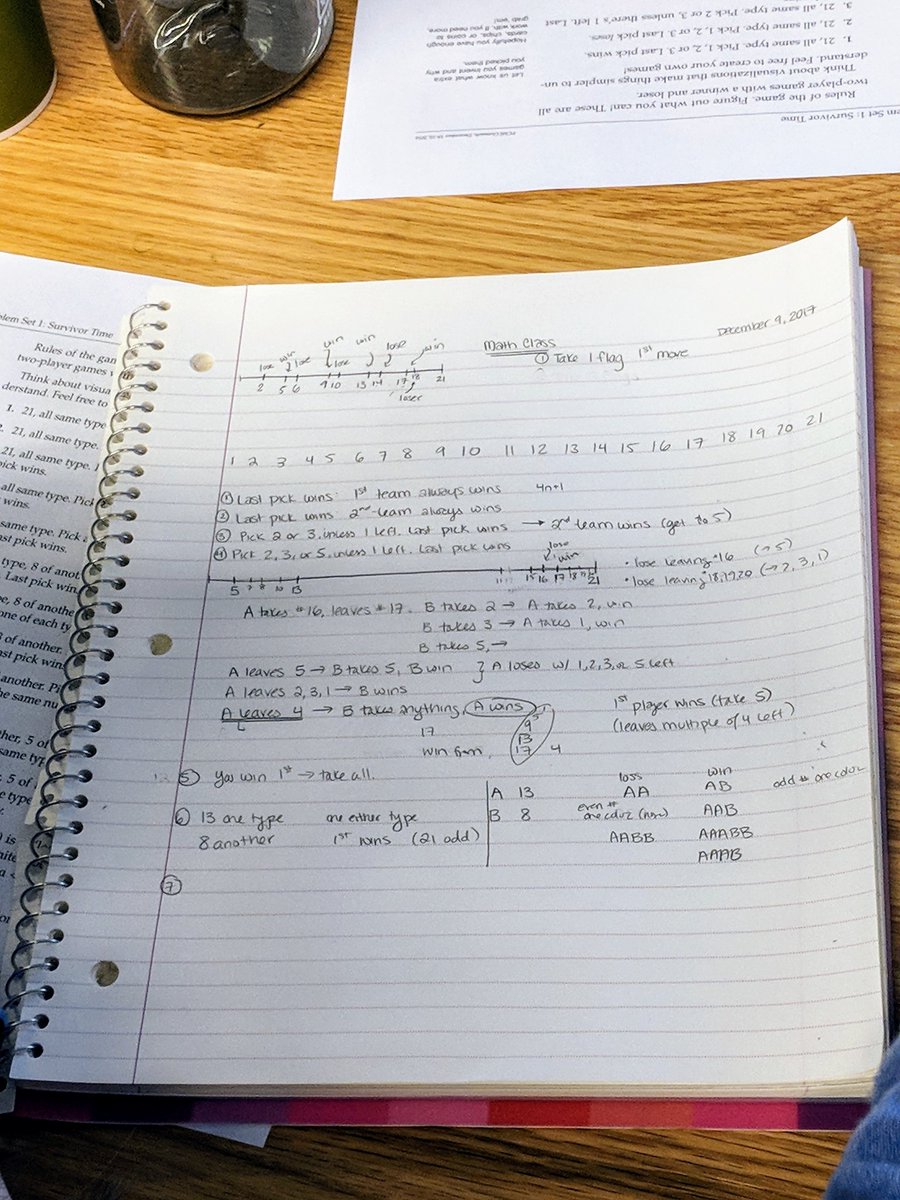 em Set 1: Survivor Time
Rules of the game. Figure out what you can! These are all
two-player games with a winner and loser.
Think about visualizations that make things simpler to un-
derstand. Feel free to create your own games!
1. 21, all same type. Pick 1, 2, or 3. Last pick wins.
2. 21, all same type. Pick 1, 2, or 3. Last pick loses.
3. 21, all same type. Pick 2 or 3, unless there's 1 left. Last
Let us know what extra
games you invent and why
you picked them.
Hopefully you have enough
cards, chips, or coins to
work with. If you need more,
grab 'em!
blem Set 1: Survivor Time
Rules of the gan
two-player games
Think about visua
derstand. Feel free to
1. 21, all same type
21, all same type.
21, all same type.
pick wins.
all same type. Pick
wins.
same type. Pick
ast pick wins.
type, 8 of anot
Last pick win
pe, 8 of anothe
one of each ty
8 of another.
ast pick win
another. Pi
he same nu
December 9, 2017
Math Class
① Take 1 flag 1st move
lose win lose win lose win lose win
2 5 6 9 10 13 14 17 18 21
loser
1 2 3 4 5 6 7 8 9 10 11 12 13 14 15 16 17 18 19 20 21
① Last pick wins: 1st team always wins 4n+1
② Last pick wins: 2nd team always wins
③ Pick 2 or 3, unless 1 left. Last pick wins → 2nd team wins (get to 5)
④ Pick 2, 3, or 5, unless 1 left. Last pick wins
lose win
5 7 8 10 13 15 16 17 18 21
• lose leaving #16 (→ 5)
• lose leaving #18, 19, 20 (→ 2, 3, 1)
A takes #16, leaves #17. B takes 2 → A takes 2, win
B takes 3 → A takes 1, win
B takes 5, →
A leaves 5 → B takes 5, B win } A loses w/ 1, 2, 3, or 5 left
A leaves 2, 3, 1 → B wins
A leaves 4 → B takes anything, A wins
1st player wins (take 5)
(leaves multiple of 4 left)
17
win from
5
9
13
17 4
⑤ You win 1st → take all.
⑥ 13 one type one either type
8 another 1st wins (21 odd)
A 13
B 8
loss
AA
even #
one color
AABB
win
AB
AAB
AAABB
AAAB
odd # one color
⑦